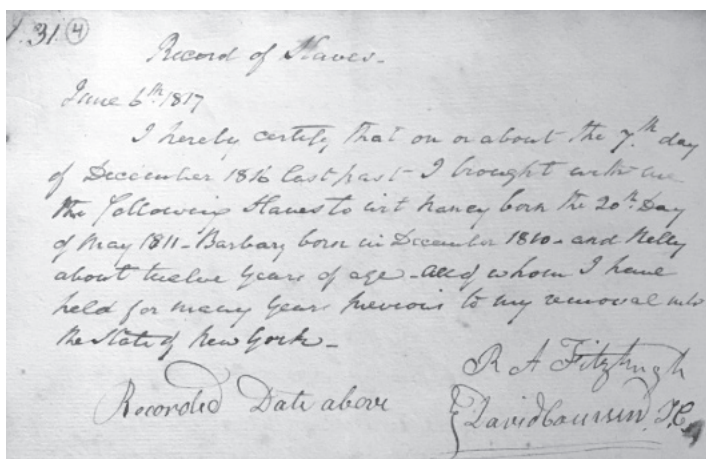 P. 31. 4
Record of Slaves.
June 6th 1817
I hereby certify that on or about the 7th day
of December 1816 last past I brought with me
the following Slaves to wit Nancy born the 20th Day
of May 1811 - Barbary born in December 1810 - and Nelly
about twelve years of age - all of whom I have
held for many years previous to my removal into
the State of New York -
R A Fitzhugh
Recorded Date above
David T.C